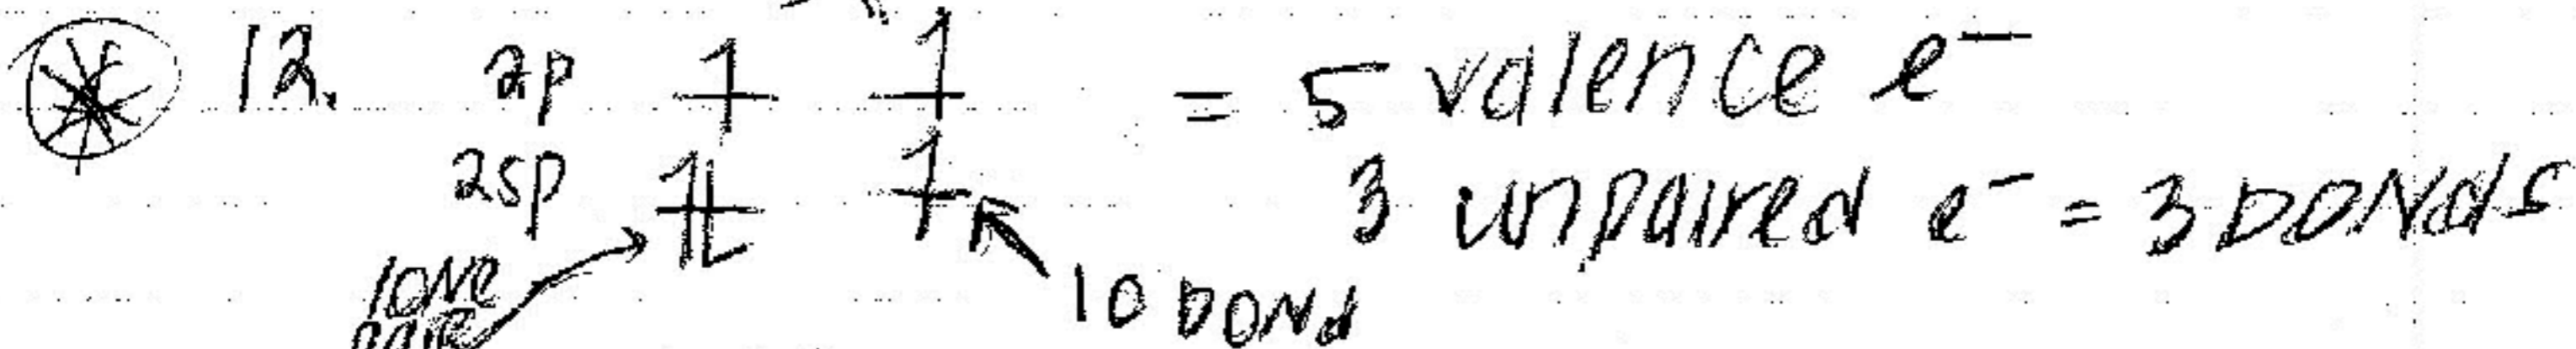 12. 2p 1 1 = 5 valence e⁻
2sp 1L 1 3 unpaired e⁻ = 3 bonds
lone pair 1σ bond